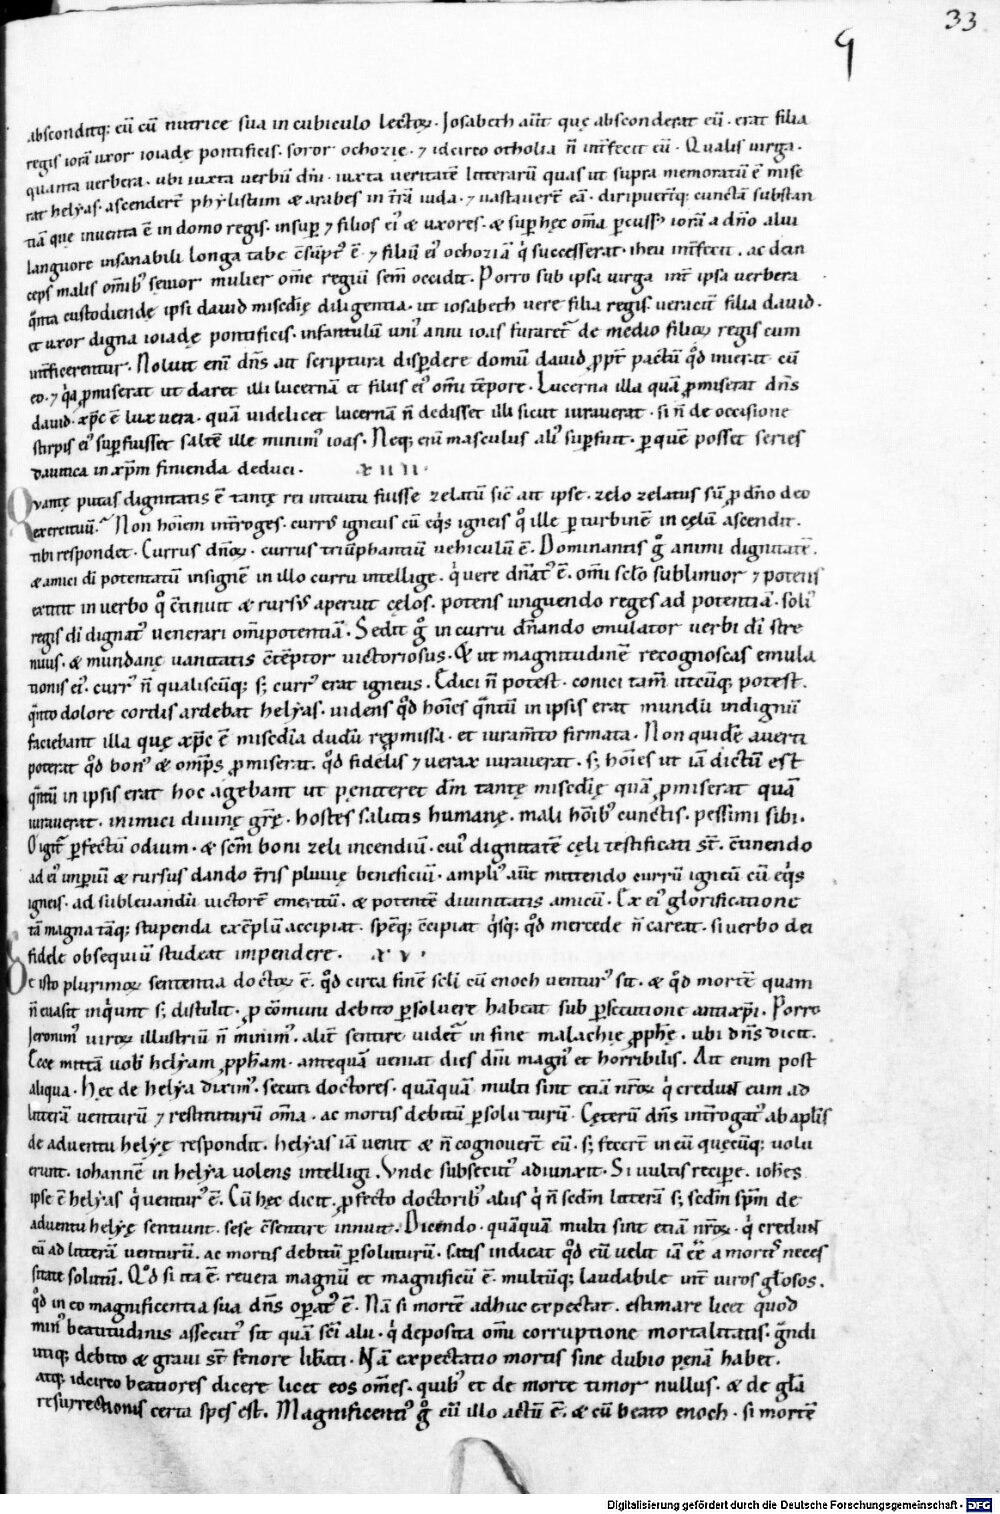 33
absconditq; eū cū nutrice sua in cubiculo lectoꝝ. Josabeth aut̄ quę absconderat eū. erat filia
regis iorā uxor ioiadę pontificis. soror ochozie. ⁊ idcirco otholia n̄ int̄fecit eū. Qualis uirga.
quanta uerbera. ubi iuxta uerbū dn̄i. iuxta ueritatē litterarū quas ut supra memoratū ē mise
rat helyas. ascendert̄ phylistiim & arabes in t̄rā iuda. ⁊ uastauert̄ eā. diripuert̄q; cunctā substan
tiā que inuenta ē in domo regis. insup̄ ⁊ filios eiꝰ & uxores. & sup̄ hęc om̄a ꝑcussꝰ iorā a dn̄o alui
languore insanabili longa tabe c̄sūptꝰ ē. ⁊ filiū eiꝰ ochoziā q̇ successerat. iheu int̄fecit. ac dein
ceps malis om̄ibꝰ seuior mulier om̄e regiū sem̄ occidit. Porro sub ipsa uirga int̄ ipsa uerbera
q̄nta custodiendę ipsi dauid mis̄edię diligentia. ut iosabeth uere filia regis. ueracit̄ filia dauid.
et uxor digna ioiadę pontificis. infantulū uniꝰ anni ioas furaret̄ de medio filioꝝ regis cum
int̄ficerentur. Noluit eni dn̄s ait scriptura disꝑdere domū dauid ꝓpt̄ pactū q̊d inierat cū
eo. ⁊ q̇a ꝓmiserat ut daret illi lucernā et filiis eiꝰ om̄i tēpore. Lucerna illa quā ꝓmiserat dn̄s
dauid. xp̄c ē lux uera. quā uidelicet lucernā n̄ dedisset illi sicut iurauerat. si n̄ de occisione
stirpis eiꝰ suꝑfuisset saltē ille minimꝰ ioas. Neq; eni masculus aliꝰ suꝑfuit. ꝑ quē posset series
dauitica in xp̄m finienda deduci. XIIII.
Quantę putas dignitatis ē tantę rei intuitu fuisse zelatū sic̄ ait ipse. zelo zelatus sū ꝓ dn̄o deo
exercituū. Non hoīem int̄roges. currꝰ igneus cū eq̇s igneis q̊ ille ꝑ turbinē in cęlū ascendit.
tibi respondet. Currus dn̄oꝝ. currus triūphantiū uehiculū ē. Dominantis g̊ animi dignitatē.
& amici di potentatū insignē in illo curru intellige. q̇ uere dn̄atꝰ ē. om̄i sclo sublimior ⁊ potens
extitit in uerbo q̊ c̄tinuit & rursꝰ aperuit cęlos. potens unguendo reges ad potentiā. soliꝰ
regis di dignatꝰ uenerari om̄ipotentiā. Sedit g̊ in curru dn̄ando emulator uerbi di stre
nuus. & mundanę uanitatis c̄tēptor uictoriosus. Et ut magnitudinē recognoscas emula
tionis eiꝰ. currꝰ n̄ qualiscūq; s; currꝰ erat igneus. Edici n̄ potest. conici tam̄ utcūq; potest.
q̄nto dolore cordis ardebat helyas. uidens q̊d hoīes q̄ntū in ipsis erat mundū indignū
faciebant illa quę xp̄c ē mis̄edia dudū reꝓmissa. et iuram̄to firmata. Non quidē auerti
poterat q̊d bonꝰ & omp̄s ꝓmiserat. q̊d fidelis ⁊ uerax iurauerat. s; hoīes ut iā dictū est
q̄ntū in ipsis erat hoc agebant ut pęniteret dm̄ tantę mis̄edię quā ꝓmiserat quā
iurauerat. inimici diuinę gr̄ę. hostes salutis humanę. mali hoībꝰ cunctis. pessimi sibi.
Digit̄ ꝑfectū odium. & scm̄ boni zeli incendiū. cuiꝰ dignitatē cęli testificati st̄. c̄tinendo
ad eiꝰ imperiū & rursus dando t̄ris pluuię beneficiū. ampliꝰ aut̄ mittendo currū igneū cū eq̇s
igneis. ad subleuandū uictorē emeritū. & potentē diuinitatis amicū. Ex eiꝰ glorificatione
tā magna tāq; stupenda exēplū accipiat. spēq; c̄cipiat q̇sq; q̊d mercede n̄ careat. si uerbo dei
fidele obsequiū studeat impendere. XV.
De isto plurimoꝝ sententia doctoꝝ ē. q̊d circa finē scli cū enoch uenturꝰ sit. & q̊d mortē quam
n̄ euasit inq̇unt s; distulit. ꝓ cōmuni debito ꝑsoluere habeat sub ꝑsecutione antixpi. Porro
Jeronimꝰ uiroꝝ illustriū n̄ minimꝰ. alit̄ sentire uidet̄ in fine malachię ꝓphę. ubi dn̄s dicit.
Ecce mittā uobꝰ helyam ꝓpham. antequā ueniat dies dn̄i magnꝰ et horribilis. Ait enim post
aliqua. Hęc de helya diximꝰ. secuti doctores. quāquā multi sint etiā nr̄oꝝ q̇ credunt eum ad
litterā uenturū ⁊ restituturū om̄a. ac mortis debitū ꝑsoluturū. Cęterū dn̄s int̄rogatꝰ ab aplīs
de aduentu helyę respondit. helyas iā uenit & n̄ cognouert̄ eū. s; fecert̄ in eū quęcūq; uolu
erunt. iohannē in helya uolens intelligi. Vnde subsecutꝰ adiunxit. Si uultis reciꝑe. ioh̄es
ipse ē helyas q̇ uenturꝰ ē. Cū hęc dicit. ꝓfecto doctoribꝰ aliis q̇ n̄ sedm̄ litterā s; sedm̄ sp̄m de
aduentu helyę sentiunt. sese c̄sentire innuit. Dicendo. quāquā multi sint etiā nr̄oꝝ. q̇ credunt
eū ad litterā uenturū. ac mortis debitū ꝑsoluturū. satis indicat q̊d eū uelit iā ēē a mortꝭ neces
sitate solutū. Qd si ita ē. reuera magnū et magnificū ē. multūq; laudabile int̄ uiros gl̄osos.
q̊d in eo magnificentia sua dn̄s opatꝰ ē. Nā si mortē adhuc expectat. estimare licet quod
minꝰ beatitudinis assecutꝰ sit quā sc̄i alii. q̇ deposita om̄i corruptione mortalitatis. g̃ndi
utiq; debito & graui st̄ fenore libati. Nā expectatio mortis sine dubio pęnā habet.
atq; idcirco beatiores dicere licet eos om̄es. quibꝰ et de morte timor nullus. & de gl̄a
resurrectionis certa spes est. Magnificentiꝰ g̊ cū illo actū ē. & cū beato enoch. si mortē
Digitalisierung gefördert durch die Deutsche Forschungsgemeinschaft - DFG